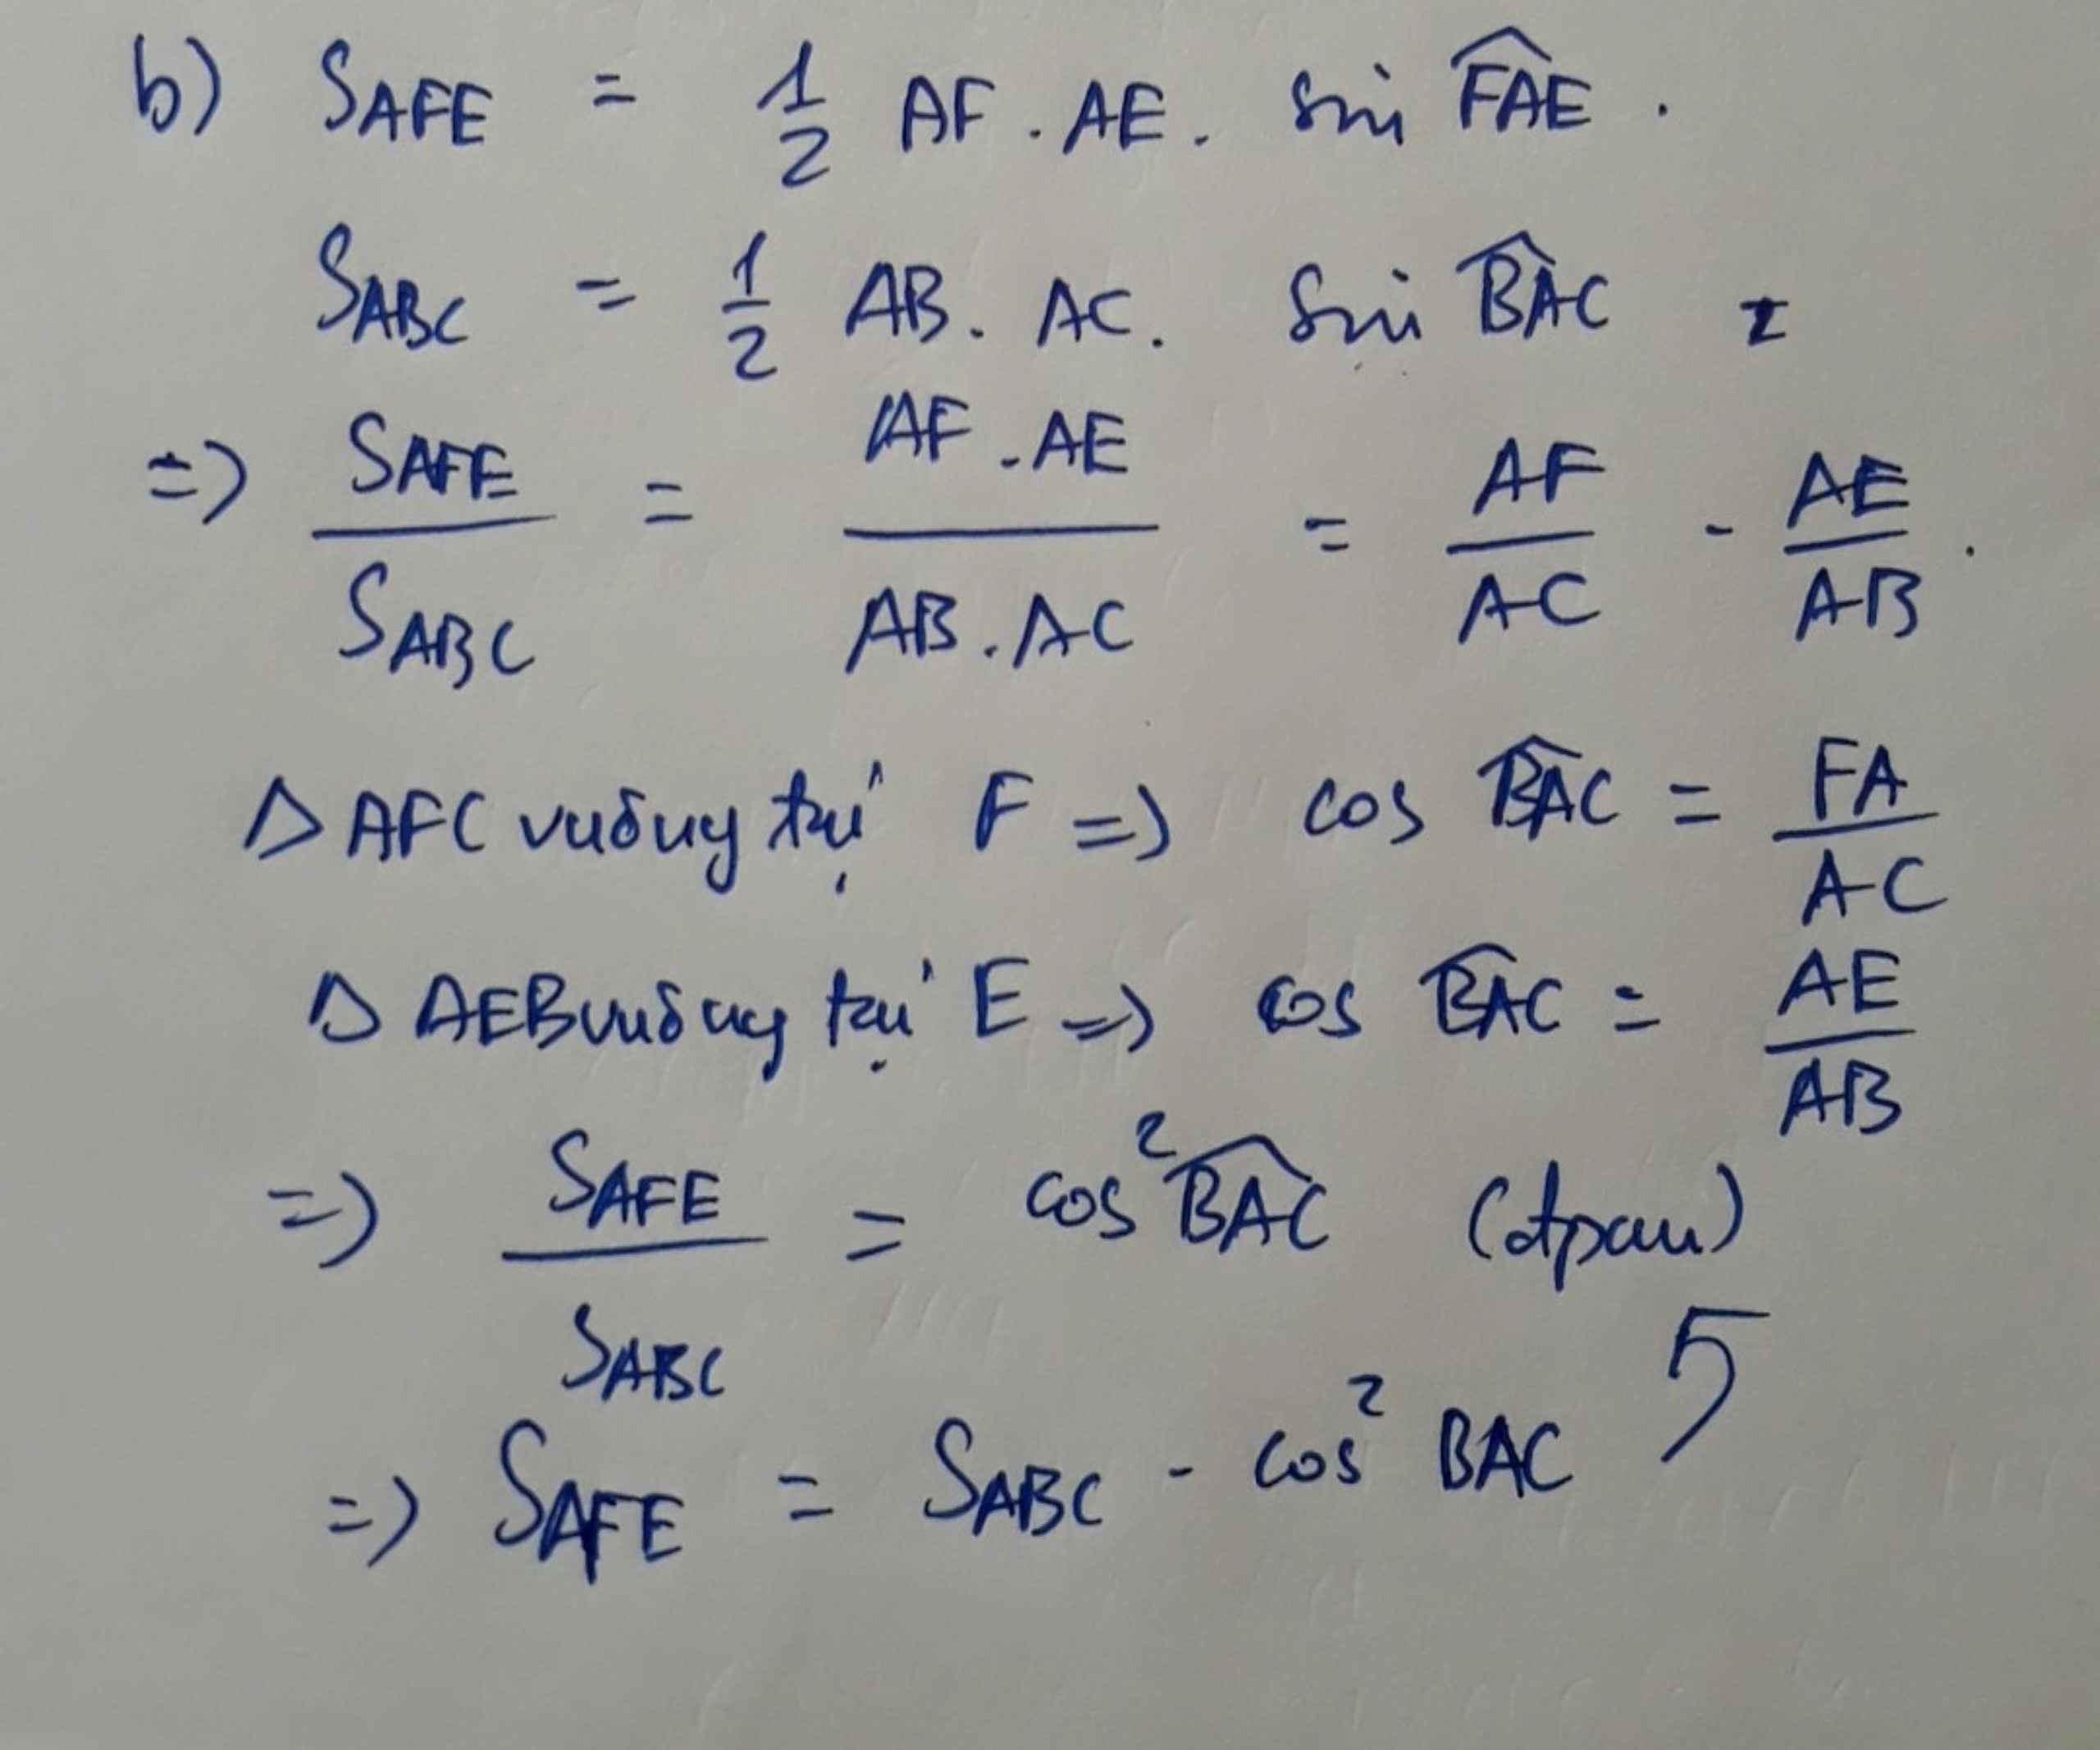 b) S_AFE = 1/2 AF . AE . sin FAE .
S_ABC = 1/2 AB . AC . sin BAC
=> S_AFE / S_ABC = AF . AE / AB . AC = AF / AC . AE / AB .
Δ AFC vuông tại F => cos BAC = FA / AC
Δ AEB vuông tại E => cos BAC = AE / AB
=> S_AFE / S_ABC = cos² BAC (đpcm)
5
=> S_AFE = S_ABC - cos² BAC